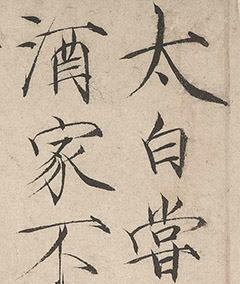 太白嘗
酒家不